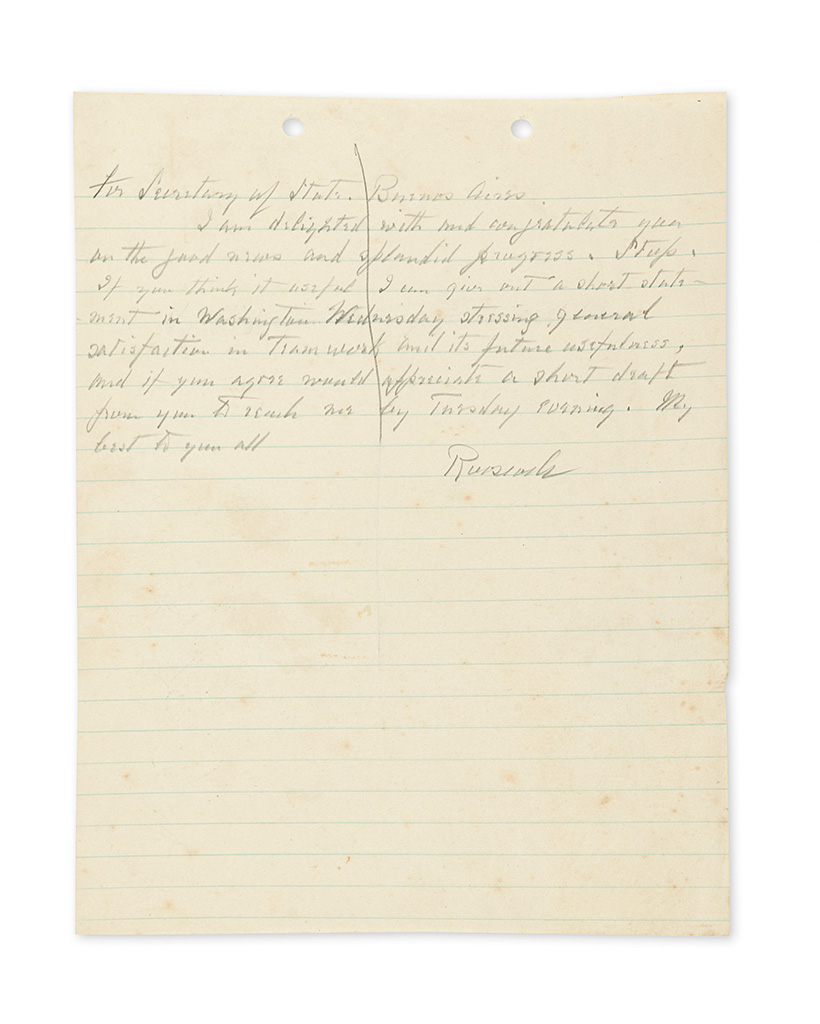 For Secretary of State. Buenos Aires.
I am delighted with and congratulate you
on the good news and splendid progress. Stop.
If you think it useful I can give out a short state-
-ment in Washington Wednesday stressing general
satisfaction in Teamwork and its future usefulness,
and if you agree would appreciate a short draft
from you to reach me by Tuesday evening. My
best to you all
Roosevelt